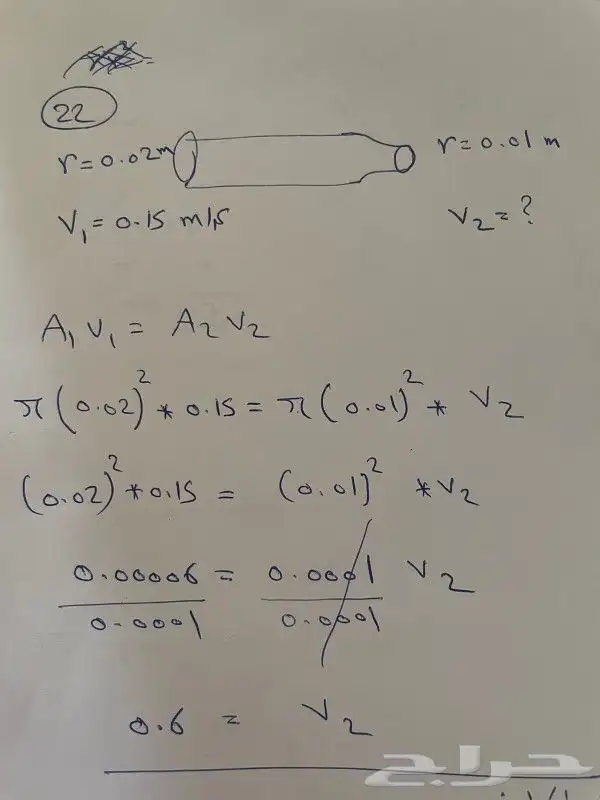 22
r = 0.02 m
r = 0.01 m
V₁ = 0.15 m/s
V₂ = ?
A₁ V₁ = A₂ V₂
π (0.02)² * 0.15 = π (0.01)² * V₂
(0.02)² * 0.15 = (0.01)² * V₂
0.00006 = 0.0001 V₂
0.0001 0.0001
0.6 = V₂
حراج